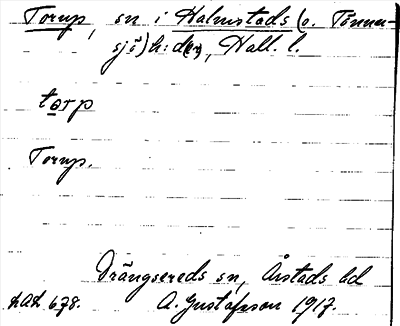 Torup, sn i Halmstads (o. Tönner-
sjö) h:d(er), Hall. l.
torp
Torup.
Drängsereds sn, Årstads hd
LAL 678. A. Gustafsson 1917.